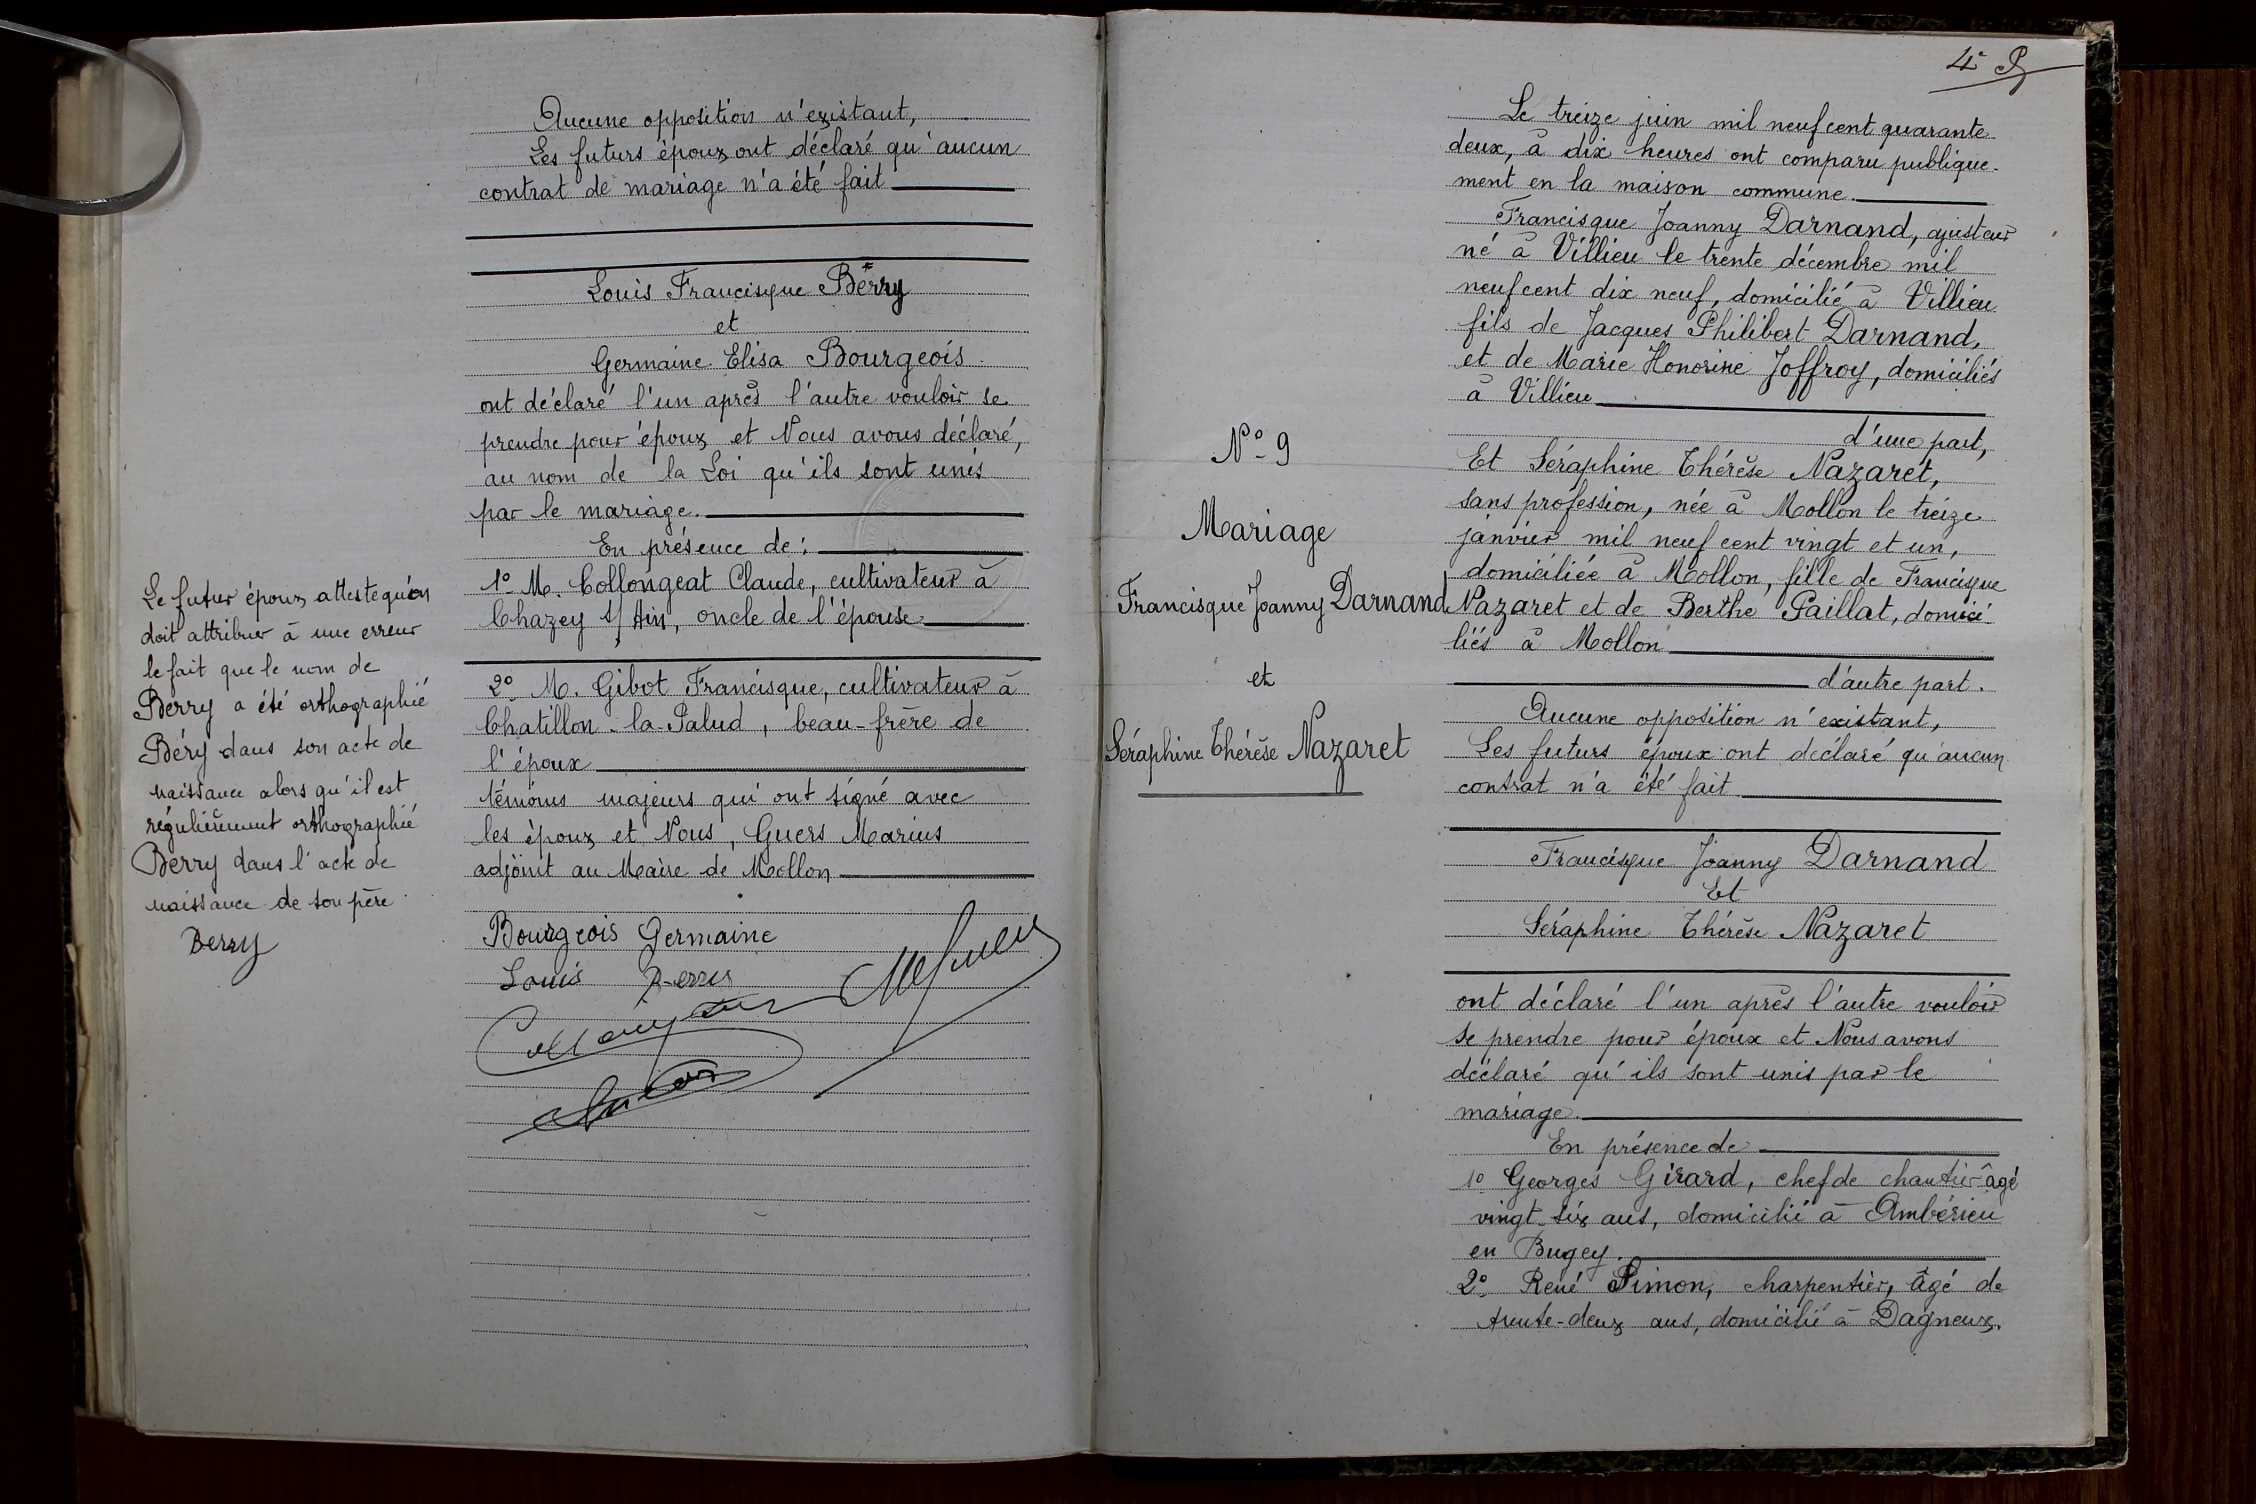 Aucune opposition n'existant,
Les futurs époux ont déclaré qu'aucun
contrat de mariage n'a été fait
Louis Francisque Berry
et
Germaine Elisa Bourgeois
ont déclaré l'un après l'autre vouloir se
prendre pour époux et Nous avons déclaré,
au nom de la Loi qu'ils sont unis
par le mariage.
En présence de :
1º M. Collongeat Claude, cultivateur à
Chazey s/ Ain, oncle de l'épouse
2º M. Gibot Francisque, cultivateur à
Chatillon-la-Palud, beau-frère de
l'époux
témoins majeurs qui ont signé avec
les époux et Nous, Guers Marius
adjoint au Maire de Mollon
Bourgeois Germaine
Louis Berry
Le futur époux atteste qu'on
doit attribuer à une erreur
le fait que le nom de
Berry a été orthographié
Béry dans son acte de
naissance alors qu'il est
régulièrement orthographié
Berry dans l'acte de
naissance de son père
Berry
4e
Nº 9
Mariage
Francisque Joanny Darnand
et
Séraphine Thérèse Nazaret
Le treize juin mil neuf cent quarante
deux, à dix heures ont comparu publique-
ment en la maison commune.
Francisque Joanny Darnand, ajusteur
né à Villieu le trente décembre mil
neuf cent dix neuf, domicilié à Villieu
fils de Jacques Philibert Darnand,
et de Marie Honorine Joffroy, domiciliés
à Villieu
d'une part,
Et Séraphine Thérèse Nazaret,
sans profession, née à Mollon le treize
janvier mil neuf cent vingt et un,
domiciliée à Mollon, fille de Francisque
Nazaret et de Berthe Paillat, domici-
liés à Mollon
d'autre part.
Aucune opposition n'existant,
Les futurs époux ont déclaré qu'aucun
contrat n'a été fait
Francisque Joanny Darnand
Et
Séraphine Thérèse Nazaret
ont déclaré l'un après l'autre vouloir
se prendre pour époux et Nous avons
déclaré qu'ils sont unis par le
mariage.
En présence de
1º Georges Girard, chef de chantier âgé
vingt-six ans, domicilié à Ambérieu
en Bugey.
2º René Simon, charpentier, âgé de
trente-deux ans, domicilié à Dagneux.